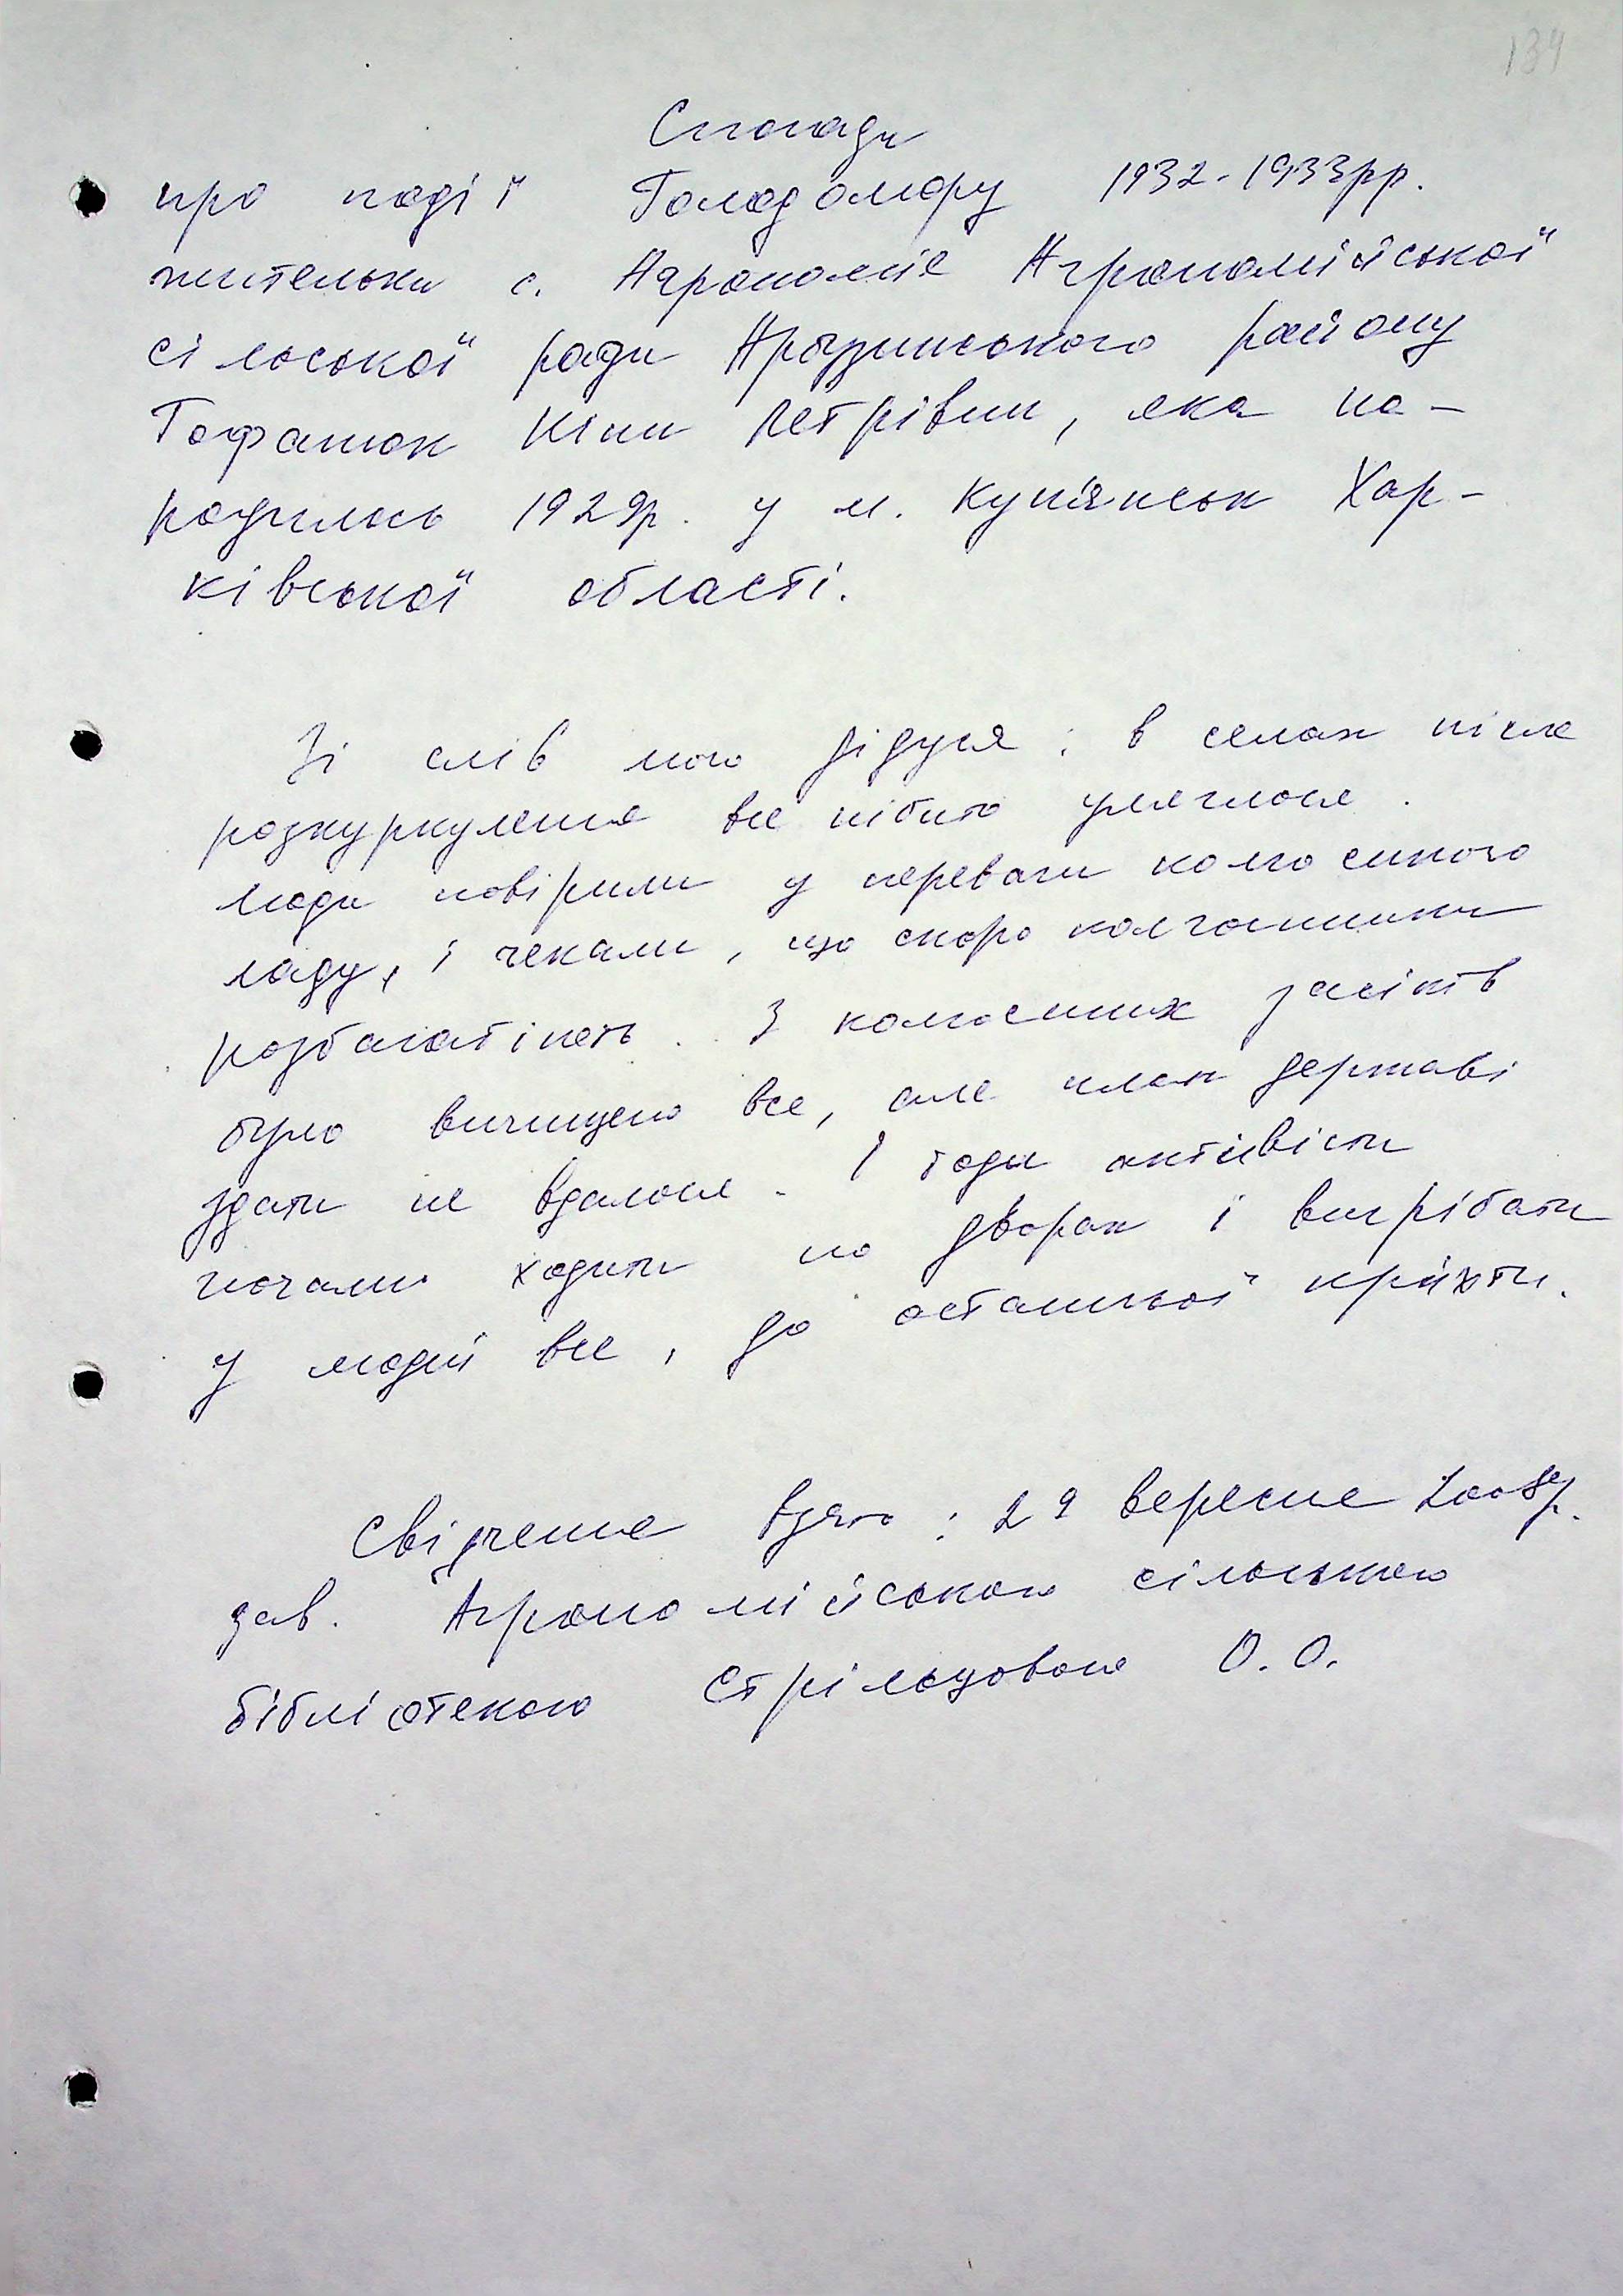 134
Спогади
про події Голодомору 1932-1933рр.
жительки с. Агрономія Агрономійської
сільської ради Арбузинського району
Гофанюк Ніни Петрівни, яка на-
родилась 1929р. у м. Куп'янськ Хар-
ківської області.
Зі слів мого дідуся: в селах після
розкуркулення все нібито уляглося.
Люди повірили у переваги колгоспного
ладу, і чекали, що скоро колгоспники
розбагатіють. З колгоспних засіків
було вичищено все, але план державі
здати не вдалося. І тоді активісти
почали ходити по дворах і вигрібати
у людей все, до останньої крихти.
Свідчення взято: 29 вересня 2008р.
зав. Агрономійською сільською
бібліотекою Стрільцовою О.О.